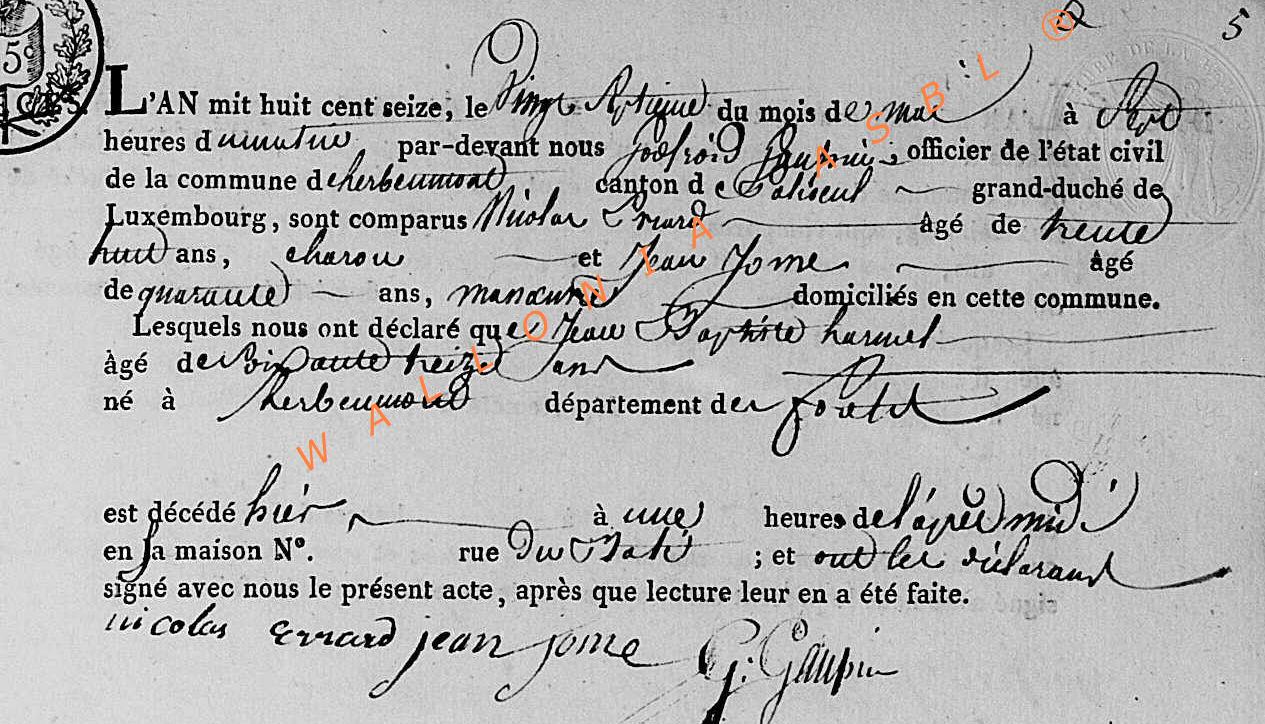 5
5c
L'AN mit huit cent seize, le Vingt Septieme du mois de mai à Sept
heures du matin par-devant nous Godfroid Gaupin officier de l'état civil
de la commune d'herbeumont canton de Paliseul grand-duché de
Luxembourg, sont comparus Nicolas Errard âgé de trente
huit ans, charon et Jean Jome âgé
de quarante ans, manœuvre domiciliés en cette commune.
Lesquels nous ont déclaré que Jean Baptiste harmel
âgé de Soixante treize ans
né à herbeumont département des forets
est décédé hier à une heures de l'après midi
en sa maison N°. rue Du ; et ont les déclarant
signé avec nous le présent acte, après que lecture leur en a été faite.
nicolas Errard jean jome G. Gaupin
WALLONIA ASBL ®